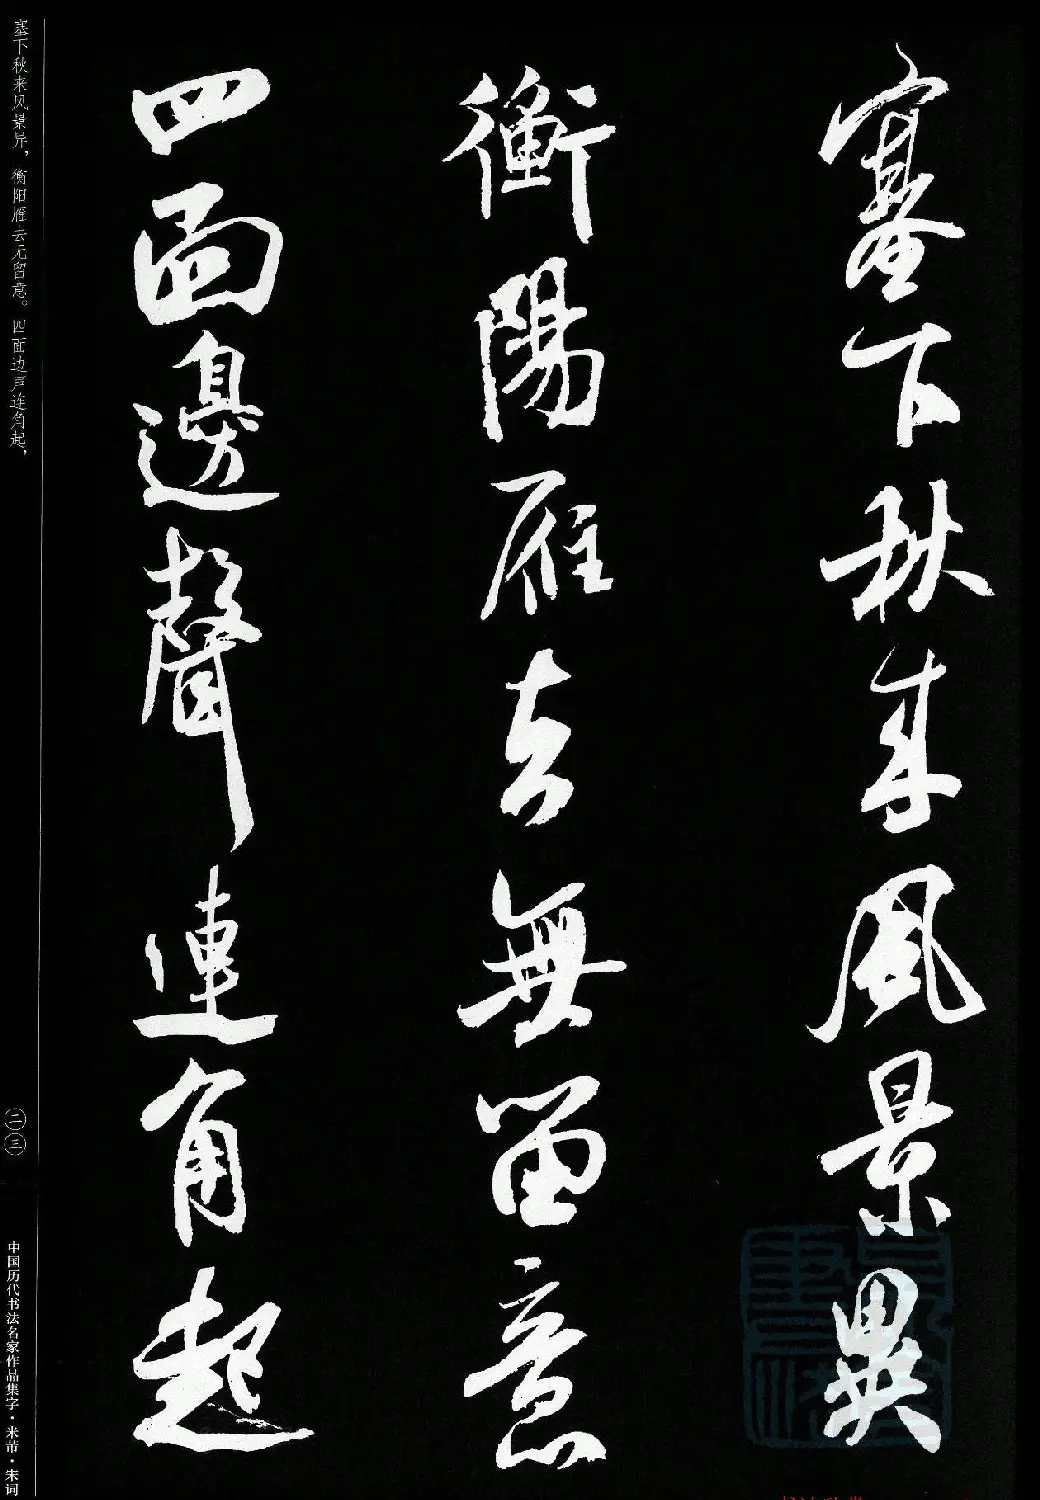 塞下秋来風景異
衡陽雁去無留意
四面邊聲連角起
塞下秋来风景异，衡阳雁去无留意。四面边声连角起，
二三
中国历代书法名家作品集字·米芾·宋词